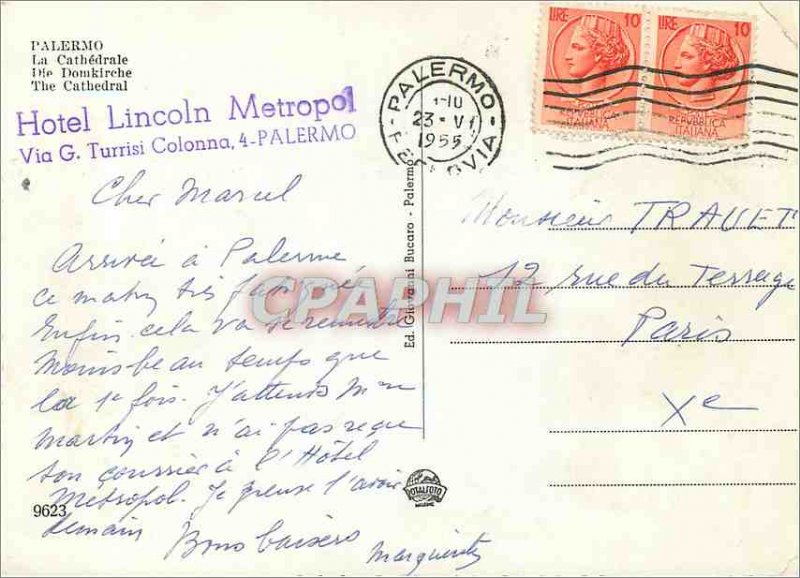 PALERMO
La Cathédrale
Die Domkirche
The Cathedral
Hotel Lincoln Metropol
Via G. Turrisi Colonna, 4-PALERMO
PALERMO
23-VI
1955
FERROVIA
LIRE 10
REPVBBLICA
ITALIANA
LIRE 10
REPVBBLICA
ITALIANA
Cher Marcel
Arrivée à Palerme
ce matin très fatiguée
Enfin cela va se remettre
Moins beau temps que
la 1e fois. J'attends Mme
Martin et n'ai pas reçu
ton courrier à l'Hôtel
Metropol. Je pense l'avoir
demain
Bons baisers
Marguerite
Monsieur TRAVET
12 rue du Terrage
Paris
Xe
Ed. Giovanni Bucaro - Palermo
ROTALFOTO
9623
CPAPHIL